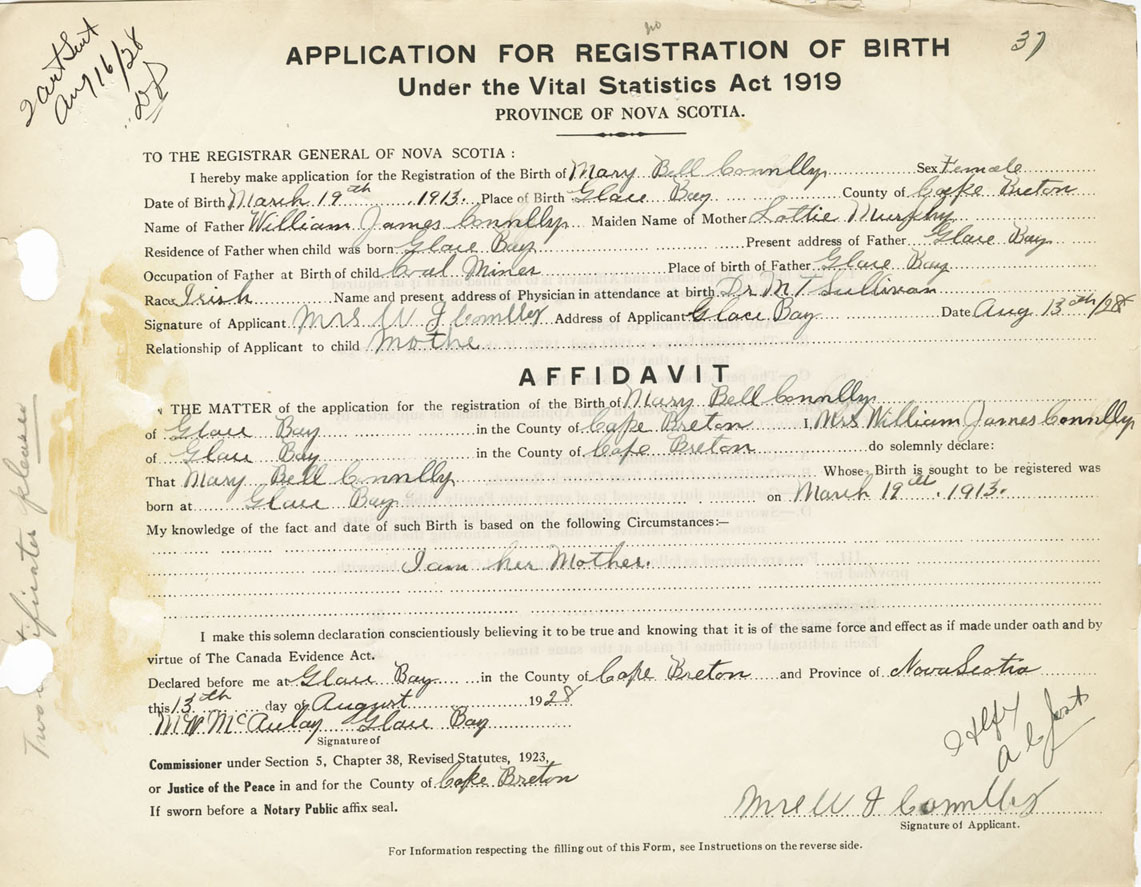 no
37
Aug 16/28
APPLICATION FOR REGISTRATION OF BIRTH
Under the Vital Statistics Act 1919
PROVINCE OF NOVA SCOTIA.
TO THE REGISTRAR GENERAL OF NOVA SCOTIA :
I hereby make application for the Registration of the Birth of Mary Bell Connlly Sex Female
Date of Birth March 19th 1913. Place of Birth Glace Bay County of Cape Breton
Name of Father William James Connlly Maiden Name of Mother Lottie Murphy
Residence of Father when child was born Glace Bay Present address of Father Glace Bay
Occupation of Father at Birth of child Coal Miner Place of birth of Father Glace Bay
Race Irish Name and present address of Physician in attendance at birth Dr M T Sullivan
Signature of Applicant Mrs W J Connlly Address of Applicant Glace Bay Date Aug 13th/28
Relationship of Applicant to child Mothe
AFFIDAVIT
N THE MATTER of the application for the registration of the Birth of Mary Bell Connlly
of Glace Bay in the County of Cape Breton I, Mrs William James Connlly
of Glace Bay in the County of Cape Breton do solemnly declare:
That Mary Bell Connlly Whose Birth is sought to be registered was
born at Glace Bay on March 19th. 1913.
My knowledge of the fact and date of such Birth is based on the following Circumstances:—
I am her Mother.
I make this solemn declaration conscientiously believing it to be true and knowing that it is of the same force and effect as if made under oath and by
virtue of The Canada Evidence Act.
Declared before me at Glace Bay in the County of Cape Breton and Province of Nova Scotia
this 13th day of August 1928
McAulay Glace Bay
Signature of
Commissioner under Section 5, Chapter 38, Revised Statutes, 1923,
or Justice of the Peace in and for the County of Cape Breton
If sworn before a Notary Public affix seal.
Mrs W J Connlly
Signature of Applicant.
For Information respecting the filling out of this Form, see Instructions on the reverse side.
Two please